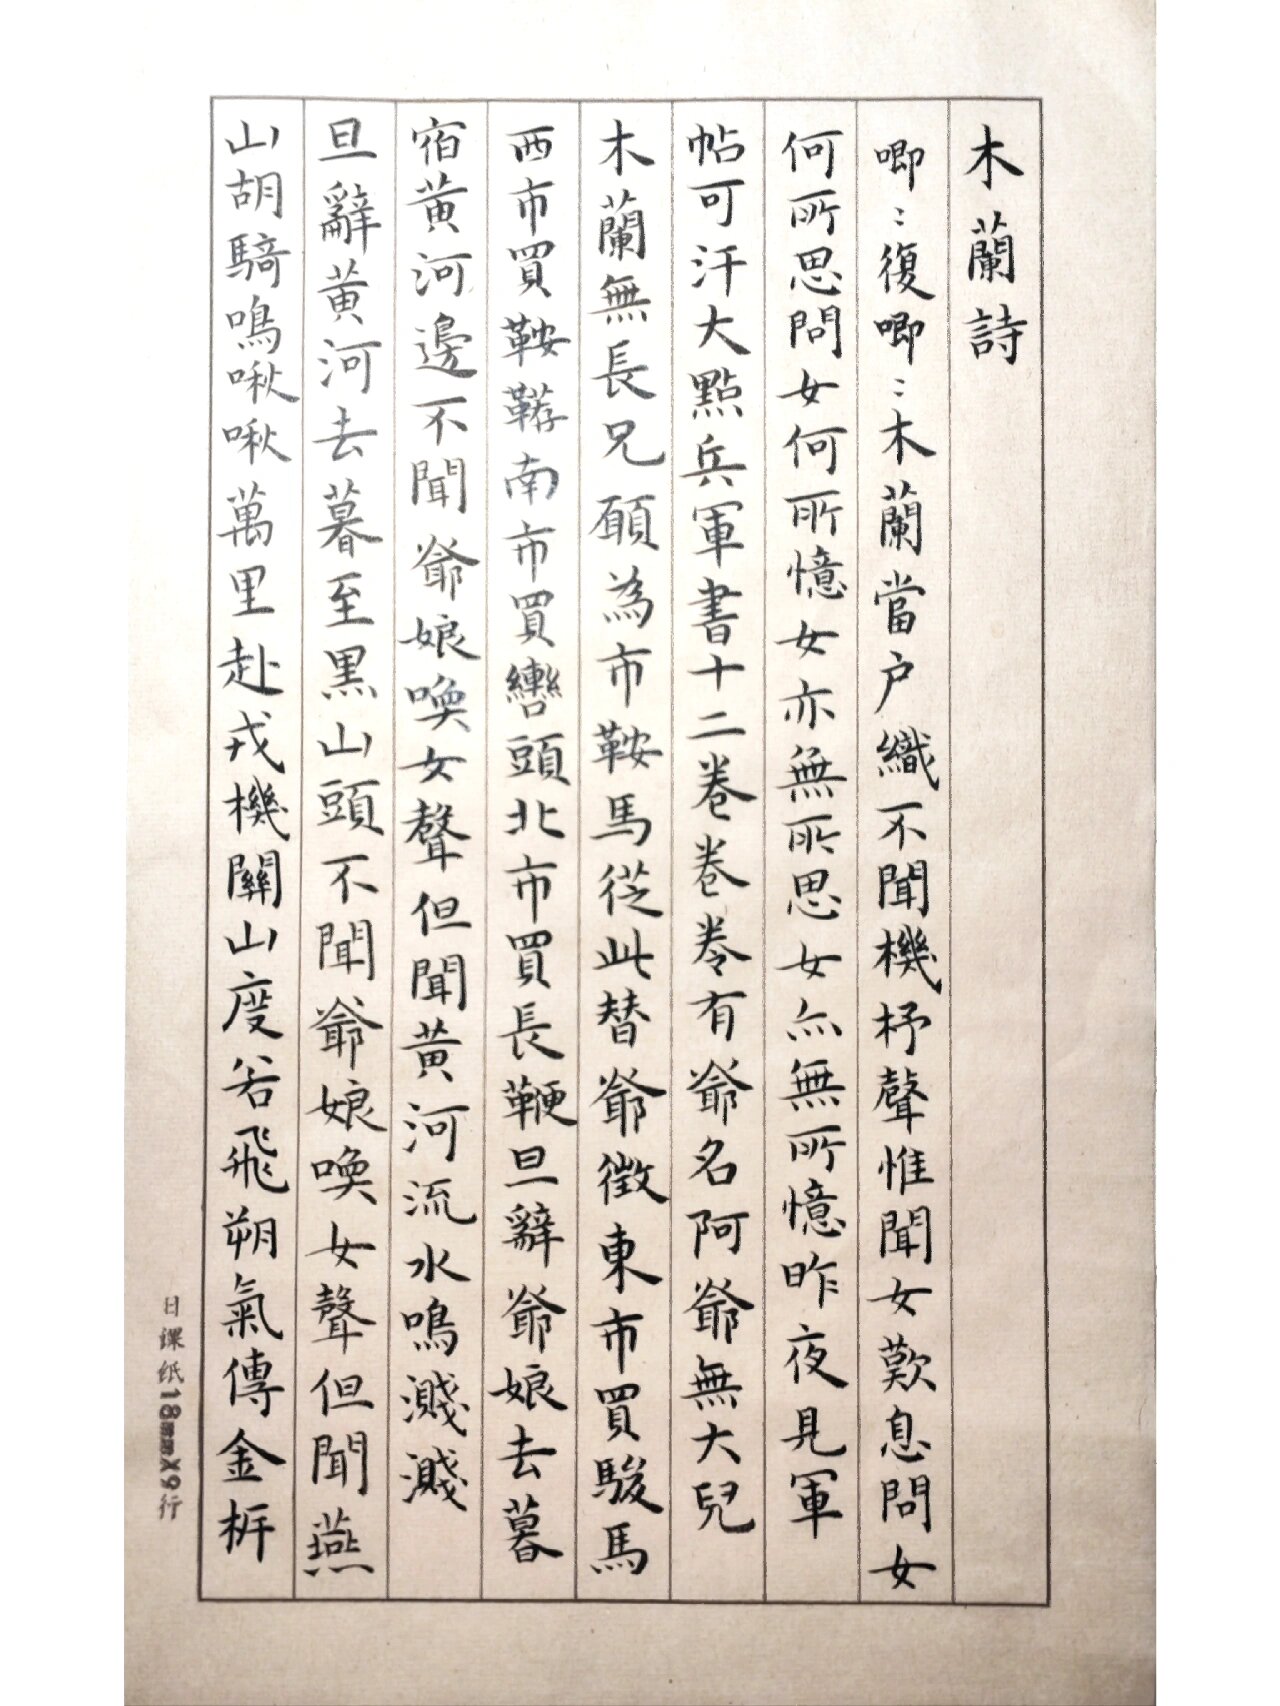 木蘭詩
唧〻復唧〻木蘭當户織不聞機杼聲惟聞女歎息問女
何所思問女何所憶女亦無所思女亦無所憶昨夜見軍
帖可汗大點兵軍書十二卷卷卷有爺名阿爺無大兒
木蘭無長兄願為市鞍馬從此替爺徵東市買駿馬
西市買鞍韉南市買轡頭北市買長鞭旦辭爺娘去暮
宿黃河邊不聞爺娘喚女聲但聞黃河流水鳴濺濺
旦辭黃河去暮至黑山頭不聞爺娘喚女聲但聞燕
山胡騎鳴啾啾萬里赴戎機關山度若飛朔氣傳金柝
日课纸18mmX9行